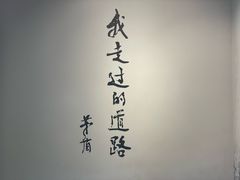 我走过的道路
茅盾